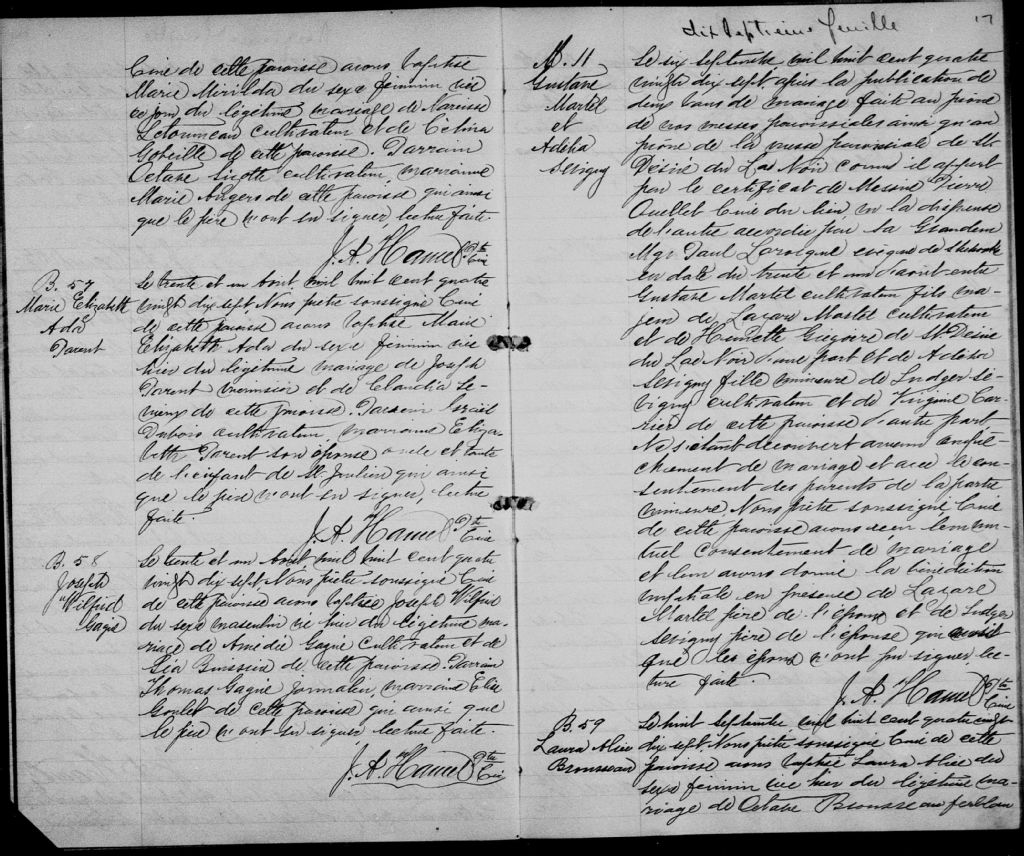 Curé de cette paroisse avons baptisé
Marie Mirilda du sexe féminin née
ce jour du légitime mariage de Narcisse
Letourneau cultivateur et de Célina
Goteille de cette paroisse. Parrain
Octave Turcotte cultivateur, marraine
Marie Angers de cette paroisse qui ainsi
que le père n'ont su signer, lecture faite.
J. A. Hamel Ptre Curé
B. 57
Marie Elizabeth
Ada
Parent
Le trente et un Août, mil huit cent quatre
vingt dix sept, Nous prêtre soussigné Curé
de cette paroisse avons baptisé Marie
Elizabeth Ada du sexe féminin née
hier du légitime mariage de Joseph
Parent menuisier et de Claudia Le-
mieux de cette paroisse. Parrain Israël
Dubois cultivateur, marraine Eliza-
beth Parent son épouse oncle et tante
de l'enfant de St Julien qui ainsi
que le père n'ont su signer, lecture
faite.
J. A. Hamel Ptre Curé
B. 58
Joseph
Wilfrid
Gagné
Le trente et un Août, mil huit cent quatre
vingt dix sept Nous prêtre soussigné Curé
de cette paroisse avons baptisé Joseph Wilfrid
du sexe masculin né hier du légitime ma-
riage de Amédée Gagné cultivateur et de
de cette paroisse. Parrain
Thomas Gagné journalier, marraine Elise
Goulet de cette paroisse qui ainsi que
le père n'ont su signer, lecture faite.
J. A. Hamel Ptre Curé
dix septième feuille
17
M. 11
Gustave
Martel
et
Adélia
Sévigny
Le six septembre mil huit cent quatre
vingt dix sept, après la publication de
deux bans de mariage faite au prône
de nos messes paroissiales ainsi qu'au
prône de la messe paroissiale de St
Désiré du Lac Noir comme il appert
par le certificat de Messire Pierre
Ouellet Curé du lieu, vu la dispense
de l'autre accordée par Sa Grandeur
Mgr Paul Larocque évêque de Sherbrooke
en date du trente et un d'août entre
Gustave Martel cultivateur fils ma-
jeur de Lazare Martel cultivateur
et de Henriette Grégoire de St Désiré
du Lac Noir d'une part et de Adélia
Sévigny fille mineure de Ludger Sé-
vigny cultivateur et de Virginie Car-
rier de cette paroisse d'autre part
Ne s'étant découvert aucun empê-
chement de mariage et avec le con-
sentement des parents de la partie
mineure, Nous prêtre soussigné Curé
de cette paroisse avons reçu leur mu-
tuel consentement de mariage
et leur avons donné la bénédiction
nuptiale en présence de Lazare
Martel père de l'époux et de Ludger
Sévigny père de l'épouse qui ainsi
que les époux n'ont pu signer, lec-
ture faite.
J. A. Hamel Ptre Curé
B. 59
Laura Alice
Brousseau
Le huit septembre mil huit cent quatre vingt
dix sept Nous prêtre soussigné Curé de cette
paroisse avons baptisé Laura Alice du
sexe féminin née hier du légitime ma-
riage de Octave Brousseau ferblan